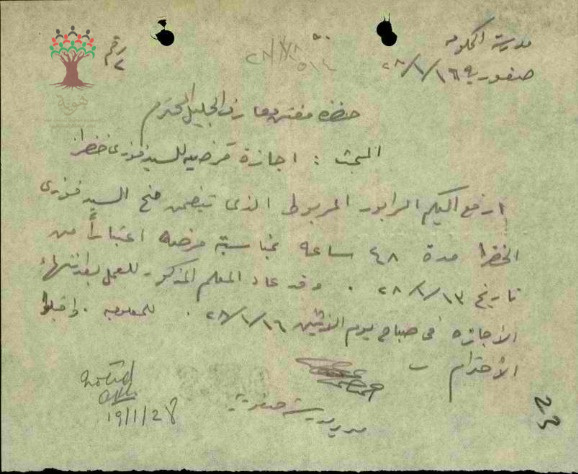 مدرسة الحكومة
صفورية ١٦/١/٢٨
رقم ٢
حضرة مفتش معارف الجليل المحترم
البحث : اجازة مرضيه للسيد فوزي خضرا
ارفع اليكم الرابور المربوط الذي تيضمن منح السيد فوزي
الخضرا مدة ٤٨ ساعه بمناسبة مرضه اعتباراً من
تاريخ ١٣/١/٢٨ . وقد عاد المعلم المذكور للعمل بعد انتهاء
الاجازه في صباح يوم الاثنين ١٦/١/٢٨ . للمعلوميه . واقبلوا
الاحترام
مدير مدرسة صفورية
Noted
19/1/28
23